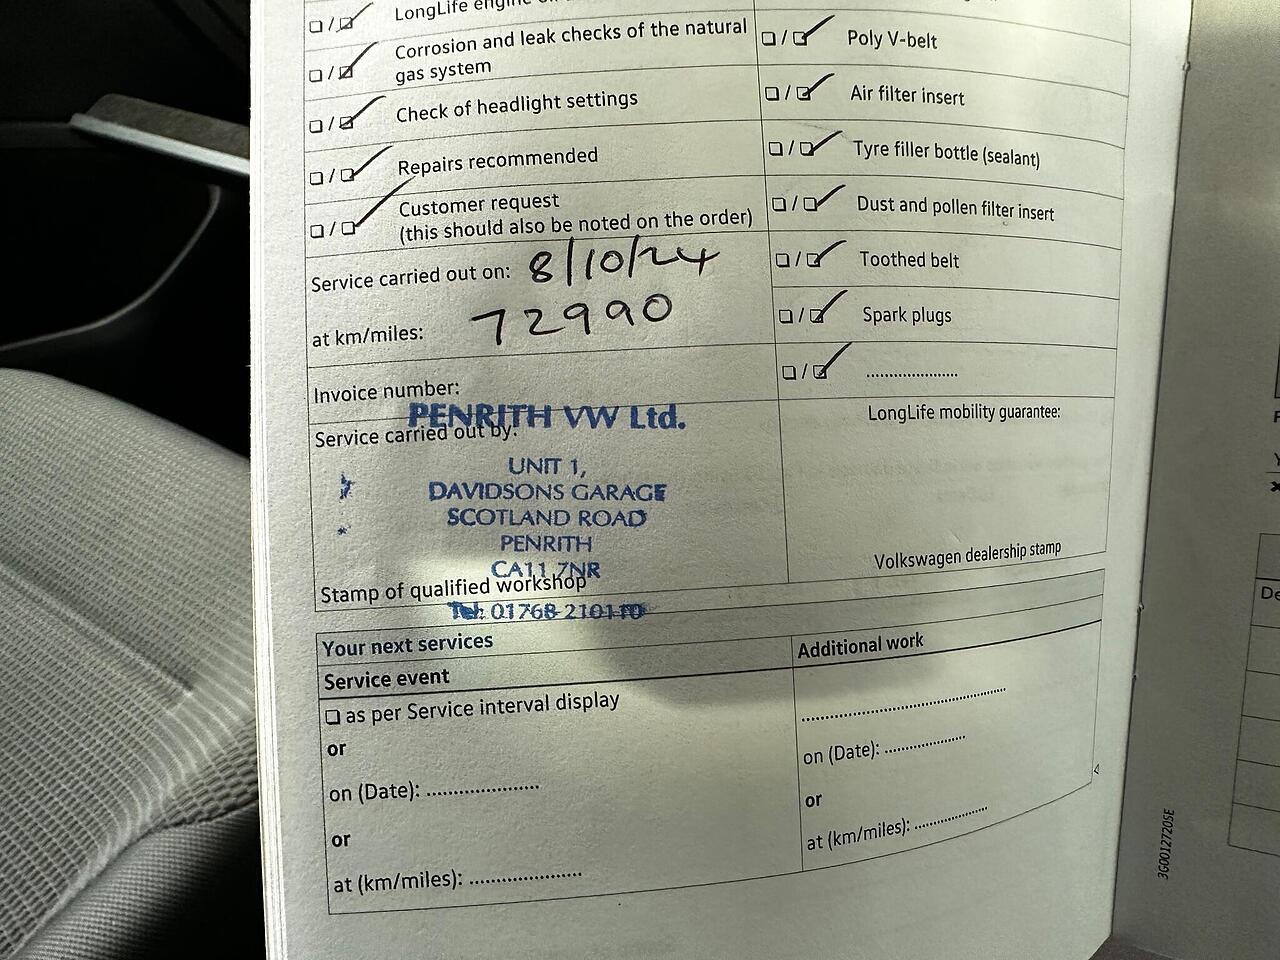 LongLife engine
Corrosion and leak checks of the natural
gas system
Check of headlight settings
Repairs recommended
Customer request
(this should also be noted on the order)
Service carried out on: 8/10/24
at km/miles: 72990
Invoice number:
PENRITH VW Ltd.
Service carried out by:
UNIT 1,
DAVIDSONS GARAGE
SCOTLAND ROAD
PENRITH
CA11 7NR
Stamp of qualified workshop
Tel: 01768 210110
Poly V-belt
Air filter insert
Tyre filler bottle (sealant)
Dust and pollen filter insert
Toothed belt
Spark plugs
.....................
LongLife mobility guarantee:
Volkswagen dealership stamp
Your next services
Service event
as per Service interval display
or
on (Date): ......................
or
at (km/miles): ......................
Additional work
........................................
on (Date): ................
or
at (km/miles): ..............
3G0012720SE
De